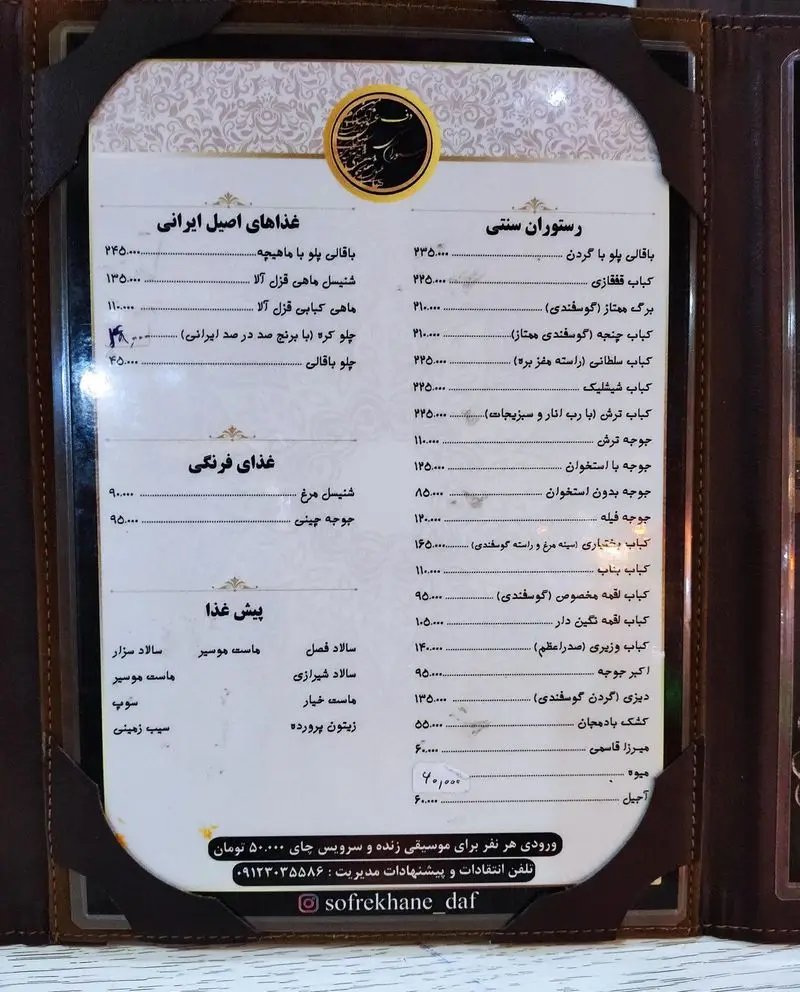 دف
رستوران سنتی
باقالی پلو با گردن ........ ۲۳۵.۰۰۰
کباب قفقازی ........ ۲۲۵.۰۰۰
برگ ممتاز (گوسفندی) ........ ۲۱۰.۰۰۰
کباب چنجه (گوسفندی ممتاز) ........ ۲۱۰.۰۰۰
کباب سلطانی (راسته مغز بره) ........ ۲۲۵.۰۰۰
کباب شیشلیک ........ ۲۲۵.۰۰۰
کباب ترش (با رب انار و سبزیجات) ........ ۲۲۵.۰۰۰
جوجه ترش ........ ۱۱۰.۰۰۰
جوجه با استخوان ........ ۱۲۵.۰۰۰
جوجه بدون استخوان ........ ۸۵.۰۰۰
جوجه فیله ........ ۱۲۰.۰۰۰
کباب بختیاری (سینه مرغ و راسته گوسفندی) ........ ۱۶۵.۰۰۰
کباب بناب ........ ۱۱۰.۰۰۰
کباب لقمه مخصوص (گوسفندی) ........ ۹۵.۰۰۰
کباب لقمه نگین دار ........ ۱۰۵.۰۰۰
کباب وزیری (صدراعظم) ........ ۱۴۰.۰۰۰
اکبر جوجه ........ ۹۵.۰۰۰
دیزی (گردن گوسفندی) ........ ۱۳۵.۰۰۰
کشک بادمجان ........ ۵۵.۰۰۰
میرزا قاسمی ........ ۶۰.۰۰۰
میوه ........ ۶۰,۰۰۰
آجیل ........ ۶۰.۰۰۰
غذاهای اصیل ایرانی
باقالی پلو با ماهیچه ........ ۲۴۵.۰۰۰
شنیسل ماهی قزل آلا ........ ۱۳۵.۰۰۰
ماهی کبابی قزل آلا ........ ۱۱۰.۰۰۰
چلو کره (با برنج صد در صد ایرانی) ........
چلو باقالی ........ ۴۵.۰۰۰
غذای فرنگی
شنیسل مرغ ........ ۹۰.۰۰۰
جوجه چینی ........ ۹۵.۰۰۰
پیش غذا
سالاد فصل ماست موسیر سالاد سزار
سالاد شیرازی ماست موسیر
ماست خیار سوپ
زیتون پرورده سیب زمینی
ورودی هر نفر برای موسیقی زنده و سرویس چای ۵۰.۰۰۰ تومان
تلفن انتقادات و پیشنهادات مدیریت : ۰۹۱۲۳۰۳۵۵۸۶
sofrekhane_daf